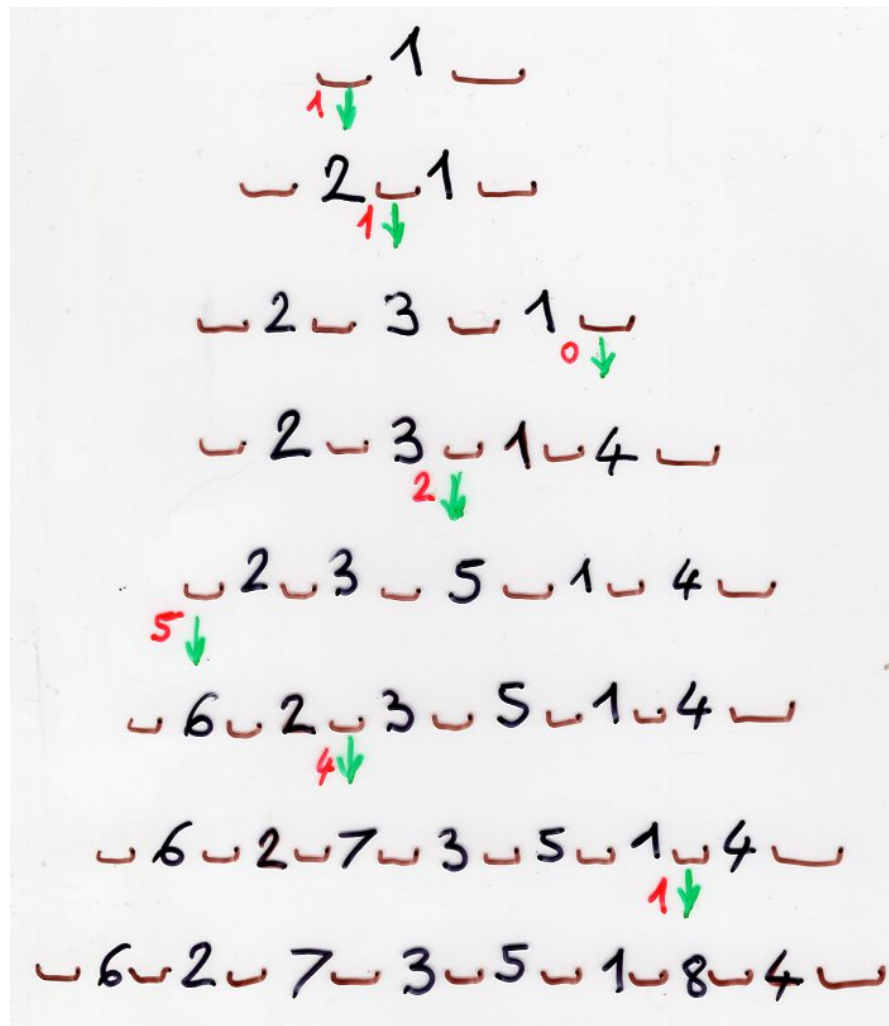 1
1
2 1
1
2 3 1
0
2 3 1 4
2
2 3 5 1 4
5
6 2 3 5 1 4
4
6 2 7 3 5 1 4
1
6 2 7 3 5 1 8 4